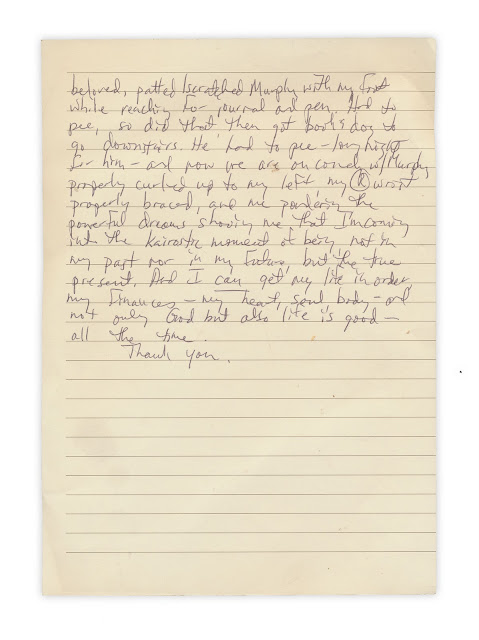 beloved, patted/scratched Murphy with my foot
while reaching for journal and pen. Had to
pee, so did that then got books & dog to
go downstairs. He had to pee – long night
for him – and now we are on couch w/ Murphy
properly curled up to my left, my (R) wrist
properly braced, and me pondering the
powerful dreams showing me that I'm coming
into the kairotic moment of being not in
my past nor in my future, but the true
present. And I can get my life in order,
my finances – my heart, soul body – and
not only God but also life is good –
all the time.
Thank you.